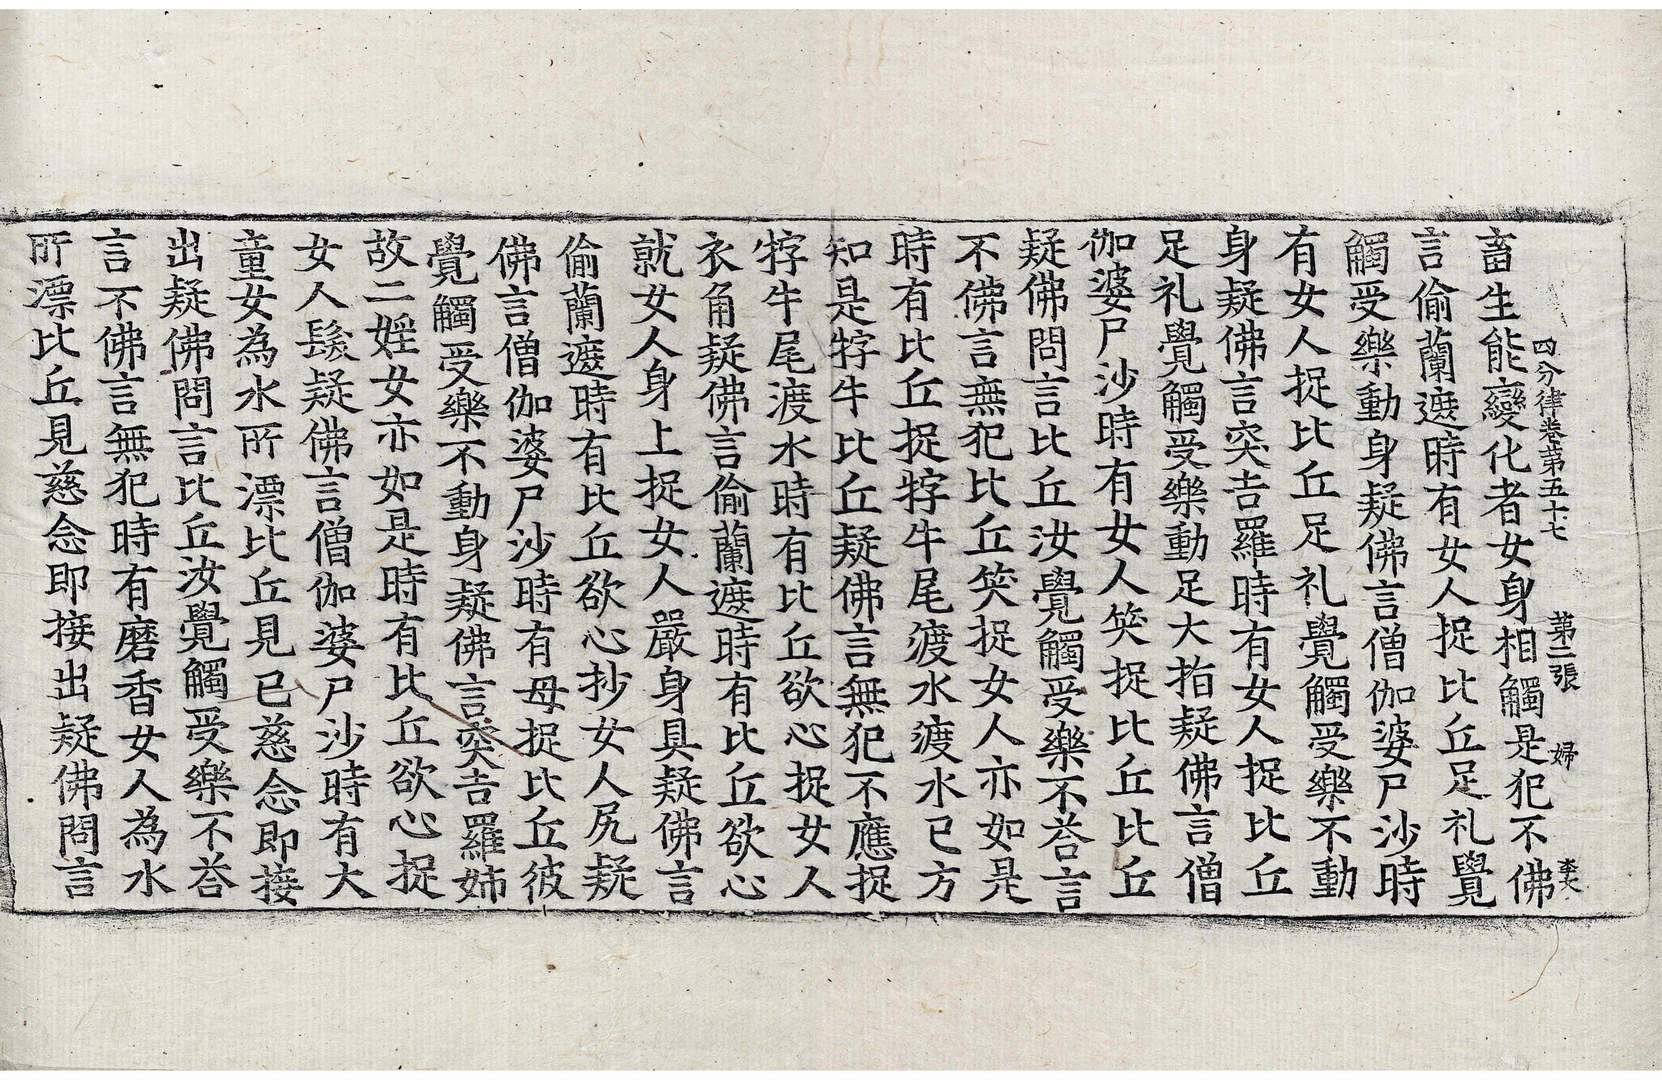 四分律卷苐五十七 苐二張 婦 李文
畜生能變化者女身相觸是犯不佛
言偷蘭遮時有女人捉比丘足礼覺
觸受樂動身疑佛言僧伽婆尸沙時
有女人捉比丘足礼覺觸受樂不動
身疑佛言突吉羅時有女人捉比丘
足礼覺觸受樂動足大指疑佛言僧
伽婆尸沙時有女人笑捉比丘比丘
疑佛問言比丘汝覺觸受樂不荅言
不佛言無犯比丘笑捉女人亦如是
時有比丘捉牸牛尾渡水渡水已方
知是牸牛比丘疑佛言無犯不應捉
牸牛尾渡水時有比丘欲心捉女人
衣角疑佛言偷蘭遮時有比丘欲心
就女人身上捉女人嚴身具疑佛言
偷蘭遮時有比丘欲心抄女人尻疑
佛言僧伽婆尸沙時有母捉比丘彼
覺觸受樂不動身疑佛言突吉羅姉
故二婬女亦如是時有比丘欲心捉
女人髮疑佛言僧伽婆尸沙時有大
童女為水所漂比丘見已慈念即接
出疑佛問言比丘汝覺觸受樂不荅
言不佛言無犯時有磨香女人為水
所漂比丘見慈念即接出疑佛問言